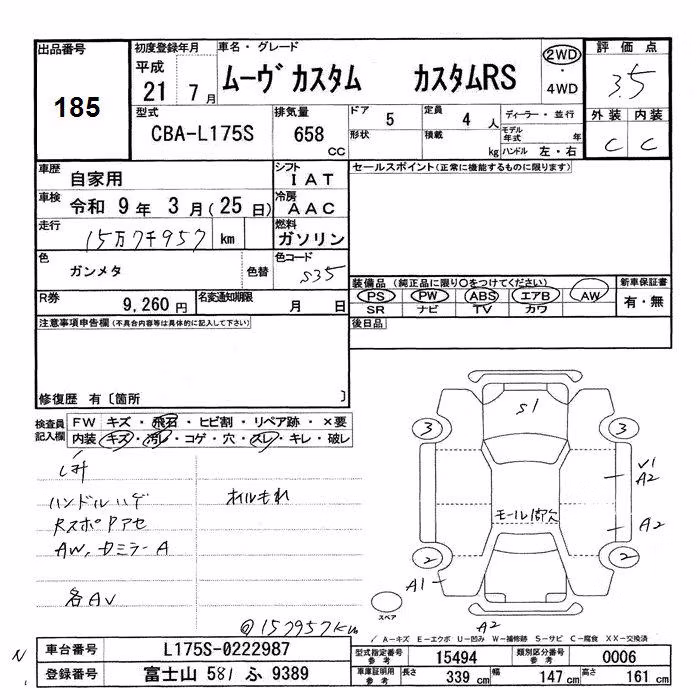 出品番号
185
初度登録年月
平成
21 7月
車名・グレード
ムーヴ カスタム カスタムRS
2WD
・
4WD
評価点
3.5
外装 内装
C C
型式
CBA-L175S
排気量
658
CC
ドア
5
定員
4 人
形状
積載
kg
ディーラー・並行
モデル年式
年
ハンドル 左・右
車歴
自家用
シフト
IAT
車検
令和 9年 3月(25日)
冷房
AAC
走行
15万7千957 km
燃料
ガソリン
色
ガンメタ
色替
色コード
S35
R券
9,260円
名変通知期限
月 日
セールスポイント(正常に機能するものに限ります)
装備品(純正品に限り○をつけてください)
PS PW ABS エアB AW
SR ナビ TV カワ
新車保証書
有・無
後日品
注意事項申告欄(不具合内容等は具体的に記入して下さい)
修復歴 有〔箇所 〕
検査員
記入欄
FW キズ・飛石・ヒビ割・リペア跡・×要
内装 キズ・汚レ・コゲ・穴・スレ・キレ・破レ
シミ
ハンドルハゲ オイルモれ
RスポPアセ
AW、ドミラーA
各AV
@157957km
S1
3 3
V1
A2
A2
モール間欠
2 2
A1
A2
スペア
╱ A-キズ E-エクボ U-凹み W-補修跡 S-サビ C-腐食 XX-交換済
N
車台番号
L175S-0222987
登録番号
富士山 581 ふ 9389
型式指定番号
参考
15494
類別区分番号
参考
0006
車庫証明用
参考
長さ 339 cm 幅 147 cm 高さ 161 cm